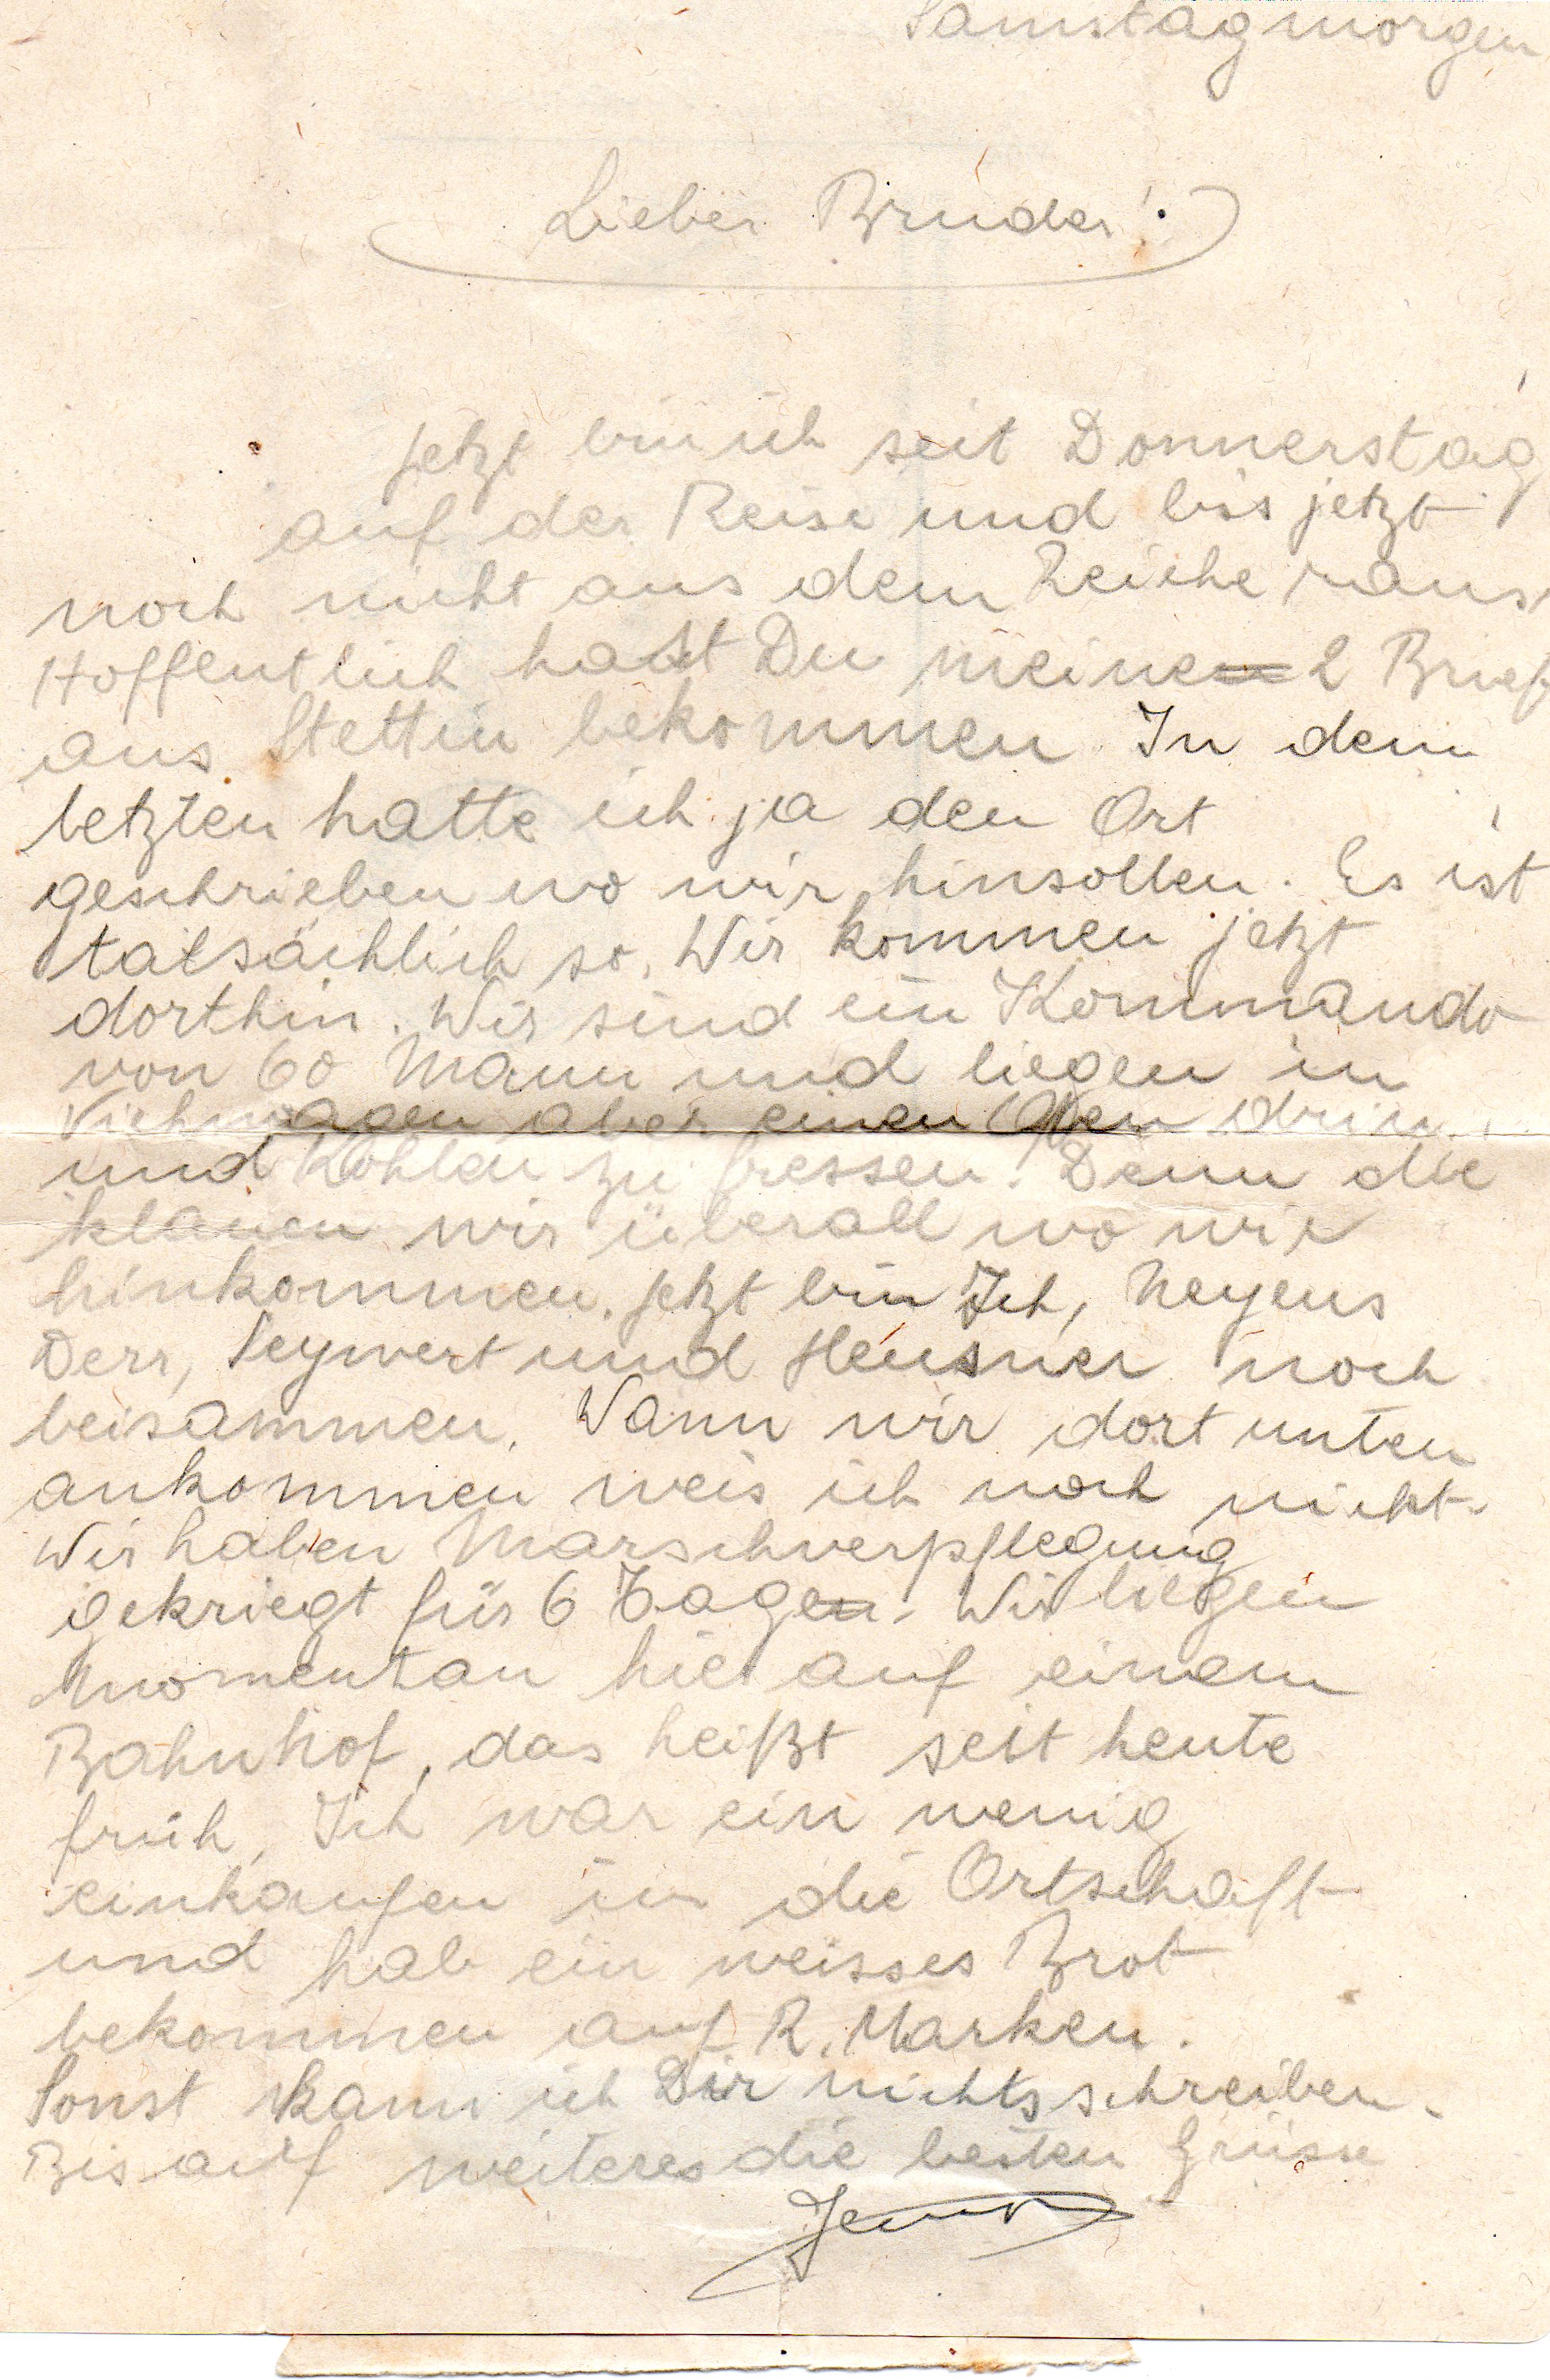 Samstagmorgen
Lieber Bruder!
Jetzt bin ich seit Donnerstag
auf der Reise und bis jetzt
noch nicht aus dem Reiche raus.
Hoffentlich hast Du meine 2 Brief
aus Stettin bekommen. In dem
letzten hatte ich ja den Ort
geschrieben wo wir hinsollen. Es ist
tatsächlich so. Wir kommen jetzt
dorthin. Wir sind ein Kommando
von 60 Mann und liegen in
Viehwagen aber einen Ofen drin
und Kohlen zu fressen. Denn die
klauen wir überall wo wir
hinkommen. Jetzt bin Ich, Neyens
Derr, Seywert und Heusner noch
beisammen. Wann wir dort unten
ankommen weis ich noch nicht.
Wir haben Marschverpflegung
gekriegt für 6 Tage. Wir liegen
momentan hier auf einem
Bahnhof, das heißt seit heute
früh. Ich war ein wenig
einkaufen in die Ortschaft
und hab ein weisses Brot
bekommen auf R. Marken.
Sonst kann ich Dir nichts schreiben.
Bis auf weiteres die besten Grüsse